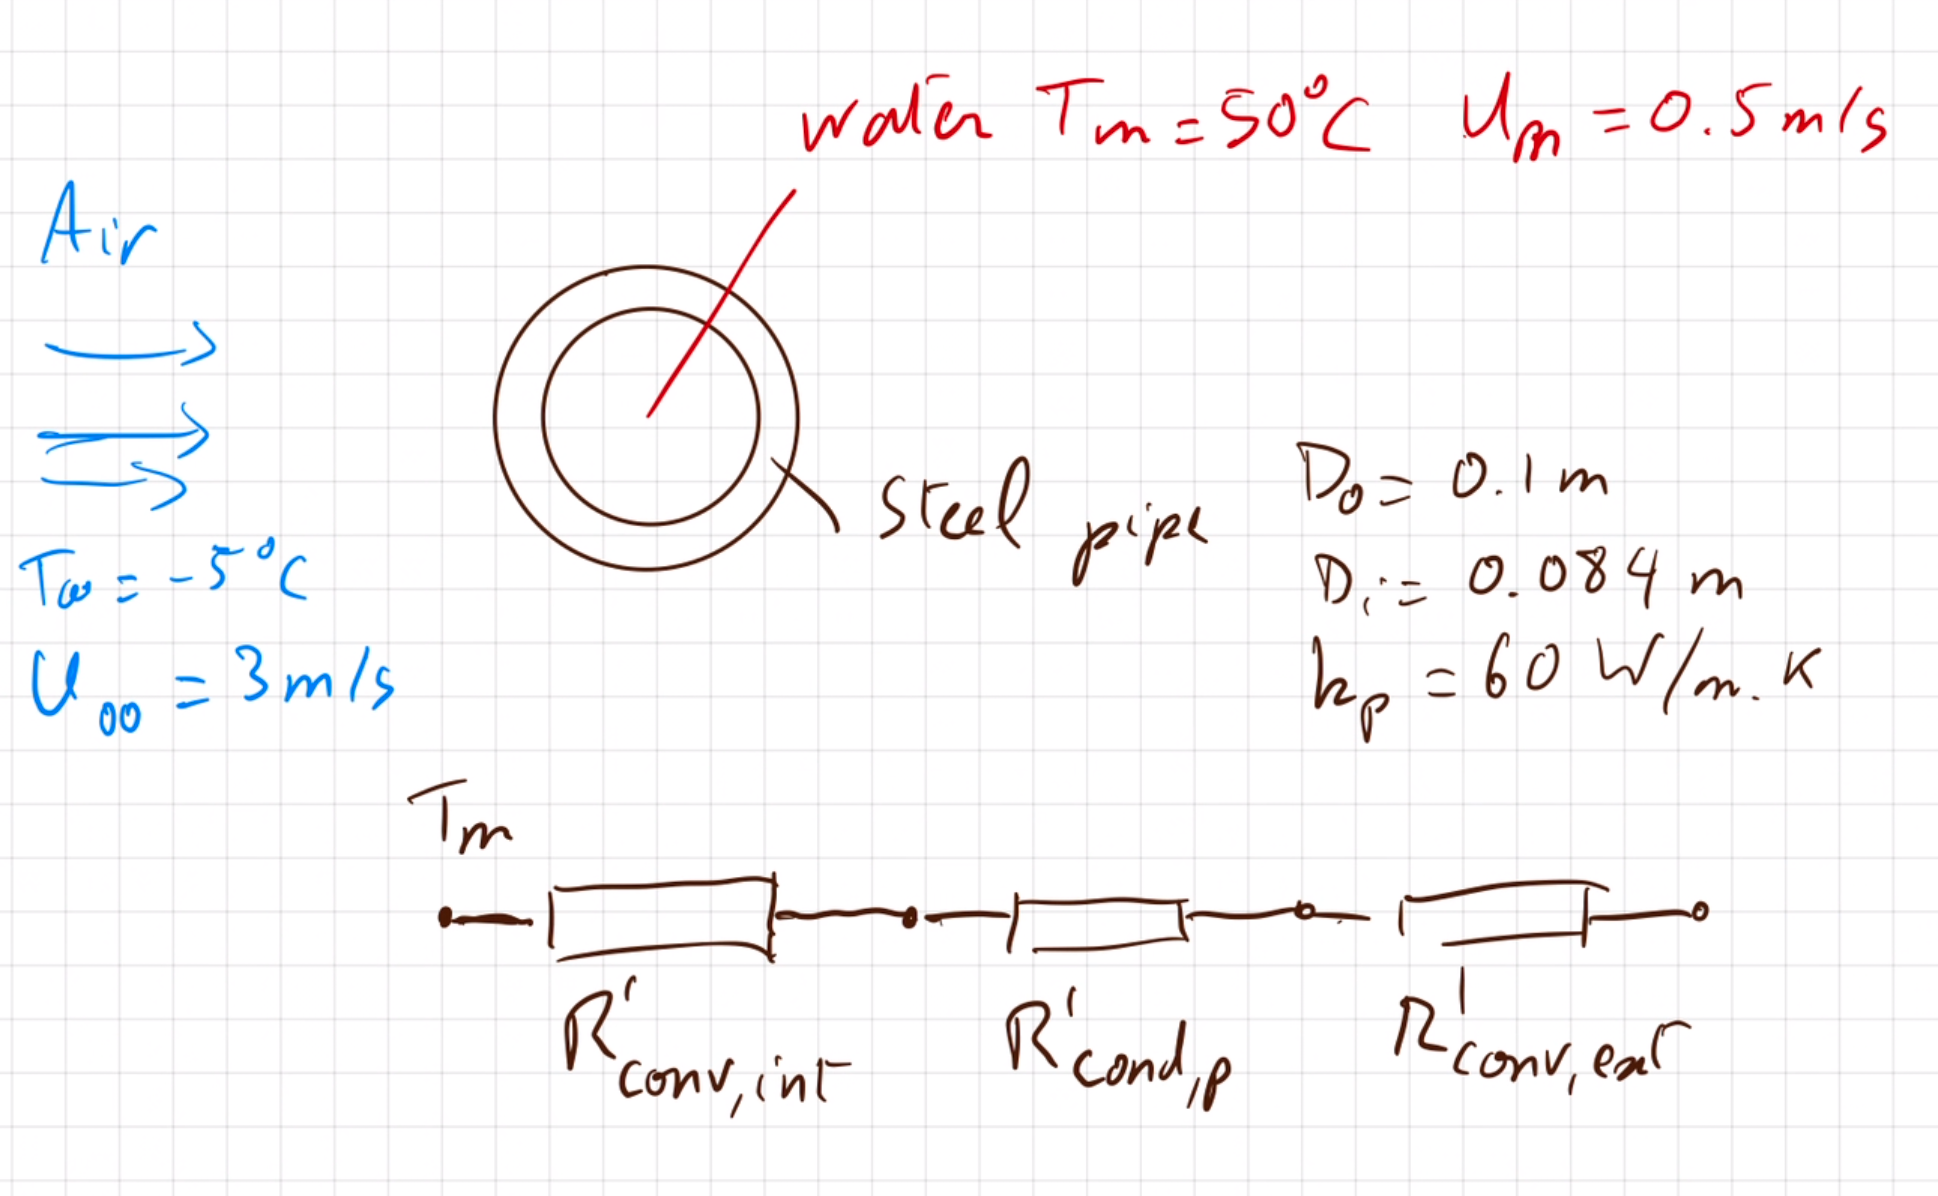 water Tm = 50°C Um = 0.5 m/s
Air
Steel pipe
D₀ = 0.1 m
Dᵢ = 0.084 m
kp = 60 W/m.K
T∞ = -5°C
U∞ = 3 m/s
Tm
R'conv,int R'cond,p R'conv,ext